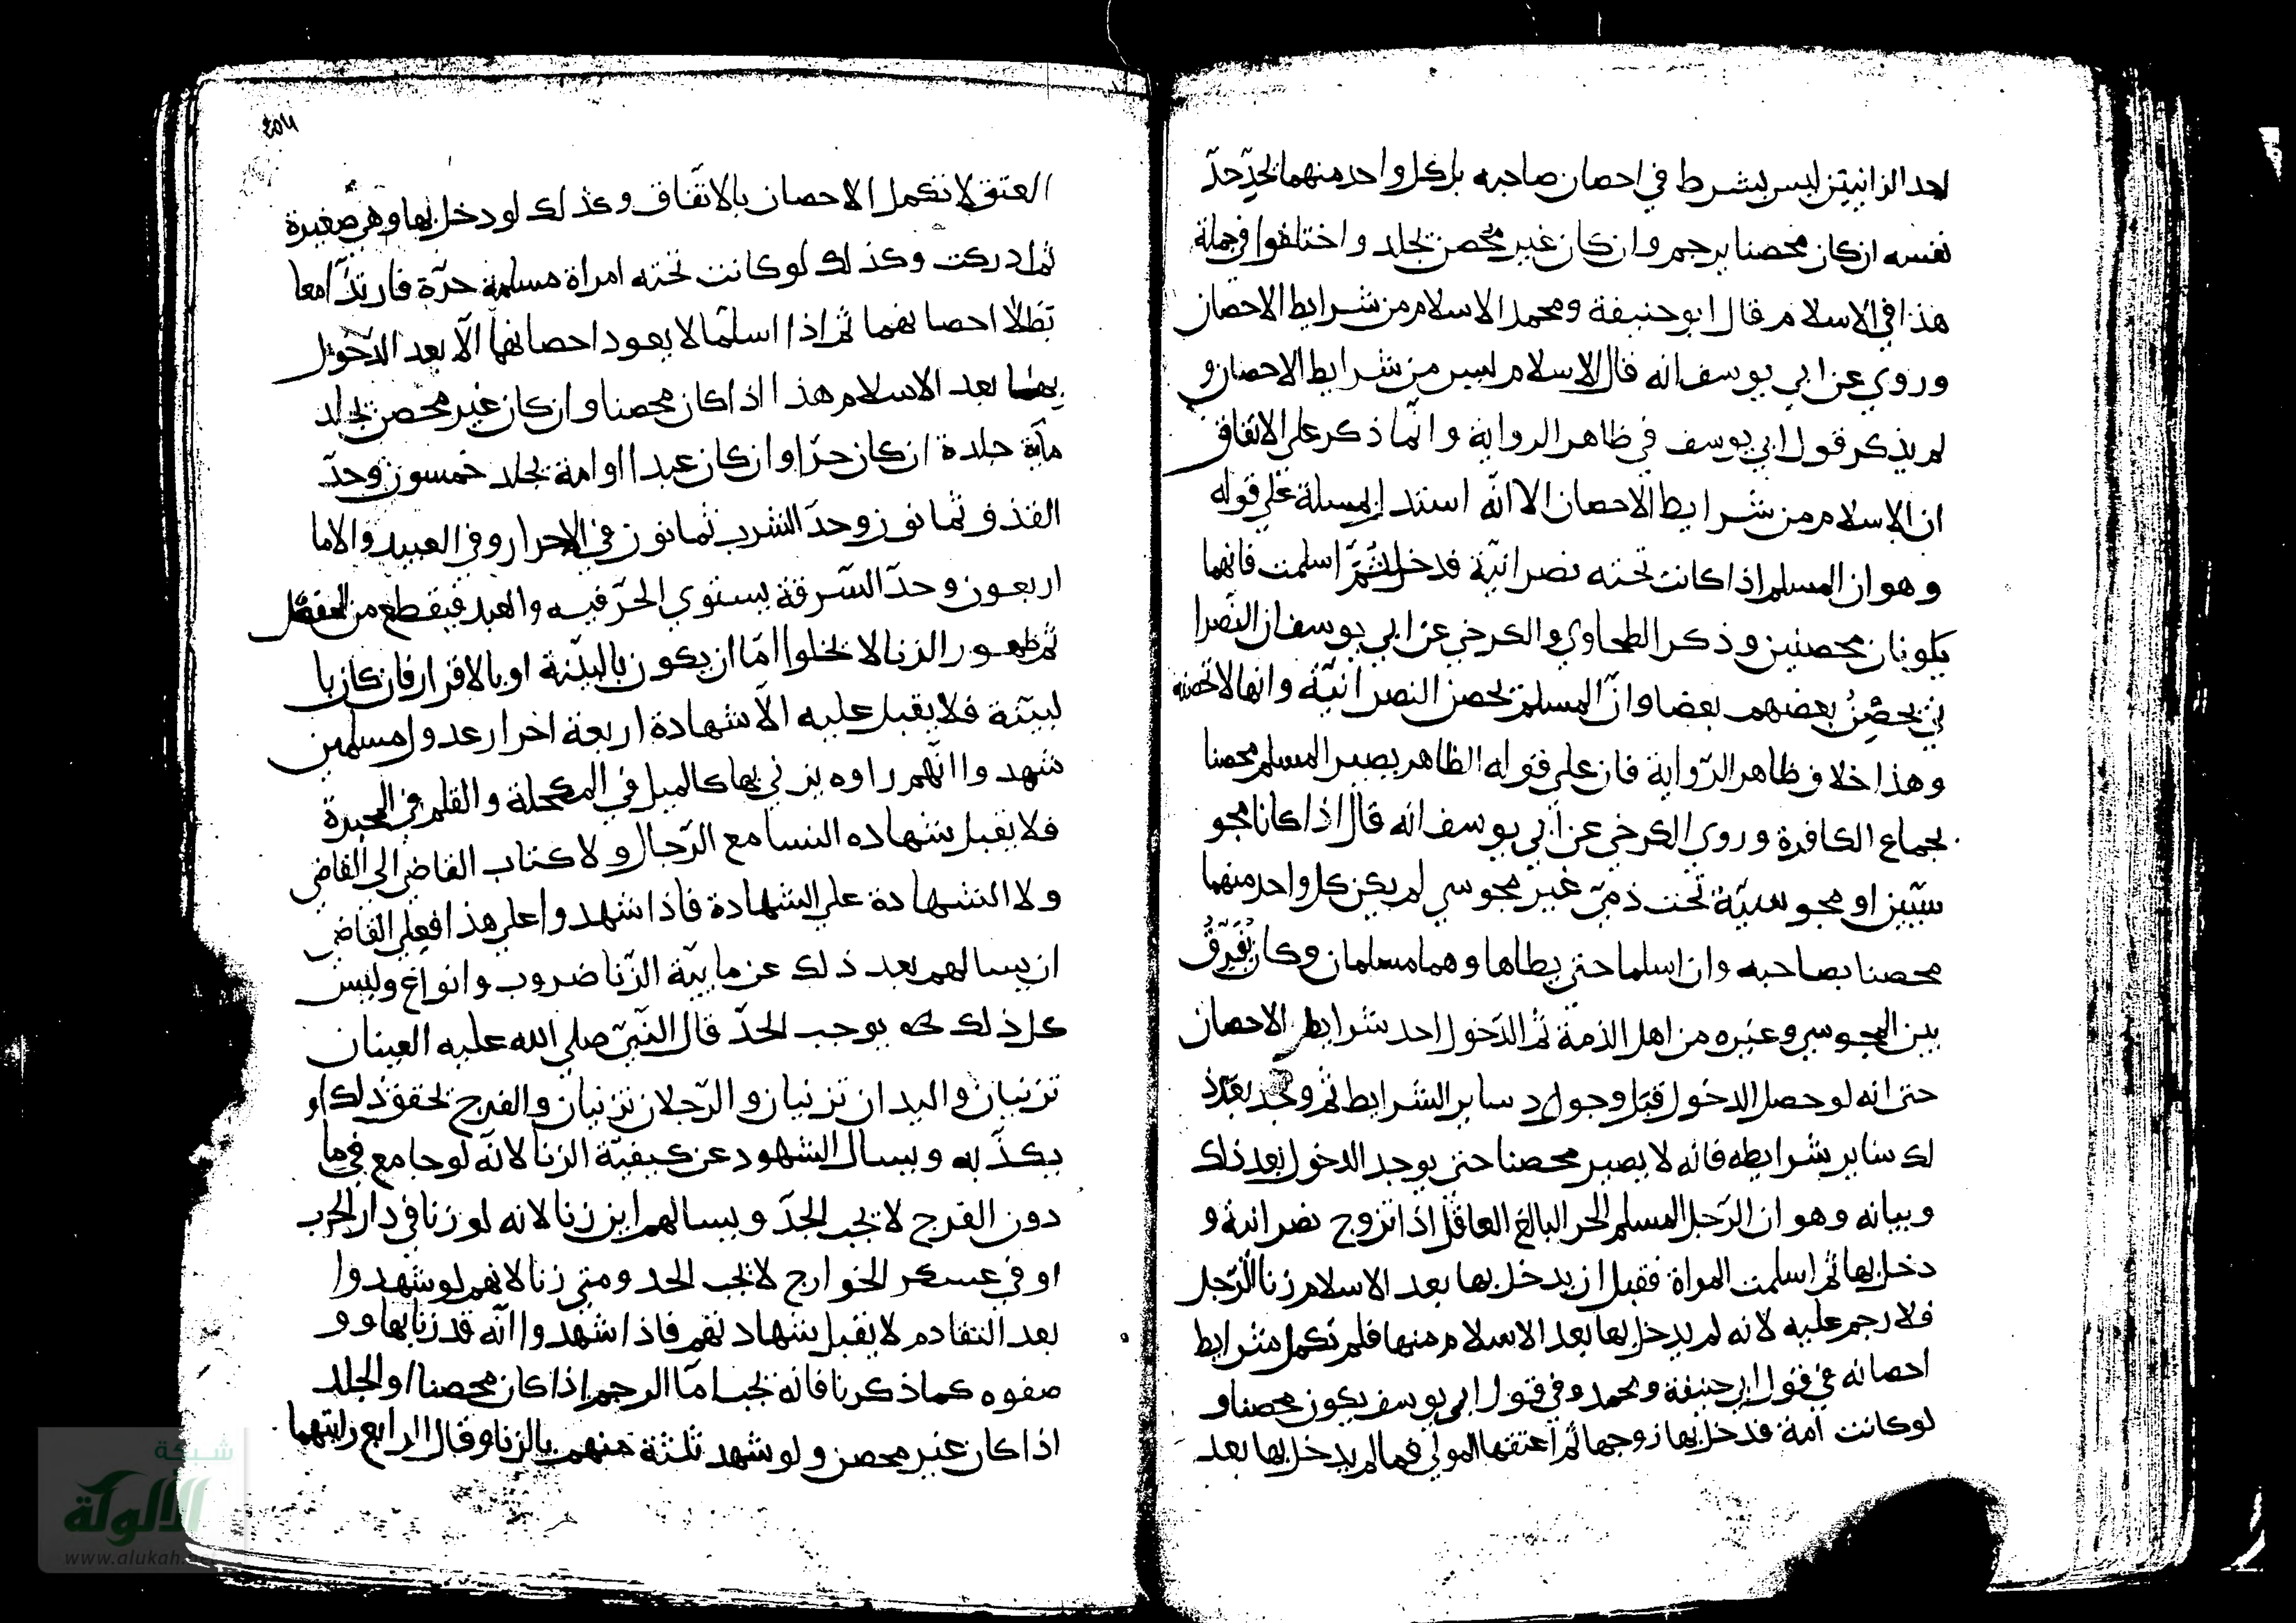 احد الزانيين ليس بشرط في احصان صاحبه بل كل واحد منهما يحدّ حدّ
نفسه ان كان محصنا يرجم وان كان غير محصن يجلد واختلفوا في جملة
هذا في الاسلام قال ابو حنيفة ومحمد الاسلام من شرايط الاحصان
وروي عن ابي يوسف انه قال الاسلام ليس من شرايط الاحصان و
لم يذكر قول ابي يوسف في ظاهر الرواية وانّما ذكر علي الاتفاق
ان الاسلام من شرايط الاحصان الا انّه استند المسلة علي قوله
وهو ان المسلم اذا كانت تحته نصرانيّة فدخل ثمّ اسلمت فانهما
يكونان محصنين وذكر الطحاوي والكرخي عن ابي يوسف ان النصرا
ني يحصن بعضهم بعضا وانّ المسلم يحصن النصرانيّة وانها لا تحصنه
وهذا خلاف ظاهر الرّواية فان علي قوله الظاهر يصير المسلم محصنا
بجماع الكافرة وروي الكرخي عن ابي يوسف انه قال اذا كانا مجو
سيّين او مجوسيّة تحت ذميّ غير مجوسي لم يكن كل واحد منهما
محصنا بصاحبه وان اسلما حتي يطاها وهما مسلمان وكان يفرّق
بين المجوسي وغيره من اهل الذمة ثم الدّخول احد شرايط الاحصان
حتي انه لو حصل الدخول قبل وجود ساير الشرايط ثم وجد بعد ذ
لك ساير شرايطه فانه لا يصير محصنا حتي يوجد الدخول بعد ذلك
وبيانه وهو ان الرّجل المسلم الحر البالغ العاقل اذا تزوج نصرانية و
دخل بها ثم اسلمت المراة فقبل ان يدخل بها بعد الاسلام زنا الرّجل
فلا رجم عليه لانه لم يدخل بها بعد الاسلام منها فلم تكمل شرايط
احصانه في قول ابي حنيفة ومحمد وفي قول ابي يوسف يكون محصنا و
لو كانت امة فدخل بها زوجها ثم اعتقها المولي فما لم يدخل بها بعد
العتق لا تكمل الاحصان بالاتّفاق وكذلك لو دخل بها وهي صغيرة
ثم ادركت وكذلك لو كانت تحته امراة مسلمة حرّة فارتدّا معا
بطلا احصانهما ثم اذا اسلما لا يعود احصانهما الاّ بعد الدّخول
بهما بعد الاسلام هذا اذا كان محصنا وان كان غير محصن يجلد
ماية جلدة ان كان حرّا وان كان عبدا او امة يجلد خمسون وحدّ
القذف ثمانون وحدّ الشرب ثمانون في الاحرار وفي العبيد والاما
اربعون وحدّ السّرقة يستوي الحرّ فيه والعبد فيقطع من المفصل
ثم ظهور الزنا لا يخلوا امّا ان يكون بالبيّنة او بالاقرار فان كان با
لبيّنة فلا يقبل عليه الاّ شهادة اربعة احرار عدول مسلمين
شهدوا انّهم راوه يزني بها كالميل في المكحلة والقلم في المحبرة
فلا يقبل شهاده النسا مع الرّجال ولا كتاب القاضي الي القاضي
ولا الشهادة علي الشهادة فاذا شهدوا علي هذا فعلي القاضي
ان يسالهم بعد ذلك عن مايّة الزّنا ضروب وانواع وليس
كل ذلك يوجب الحدّ قال النّبيّ صلي الله عليه العينان
تزنيان واليدان تزنيان والرّجلان تزنيان والفرج يحقق ذلك او
يكذّبه ويسال الشهود عن كيفيّة الزنا لانّه لو جامع فيما
دون الفرج لا يجب الحدّ ويسالهم اين زنا لانه لو زنا في دار الحرب
او في عسكر الخوارج لا يجب الحد ومتي زنا لانهم لو شهدوا
بعد التقادم لا يقبل شهادتهم فاذا شهدوا انّه قد زنا بها وو
صفوه كما ذكرنا فانه يجب امّا الرجم اذا كان محصنا او الجلد
اذا كان غير محصن ولو شهد ثلثة منهم بالزنا وقال الرابع رايتهما
شبكة
الألوكة
www.alukah.net